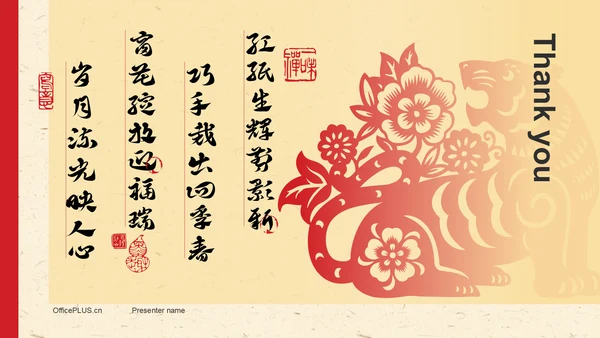 红纸生辉剪影新
巧手裁出四季春
窗花绽放迎福瑞
岁月流光映人心
Thank you
OfficePLUS.cn
Presenter name